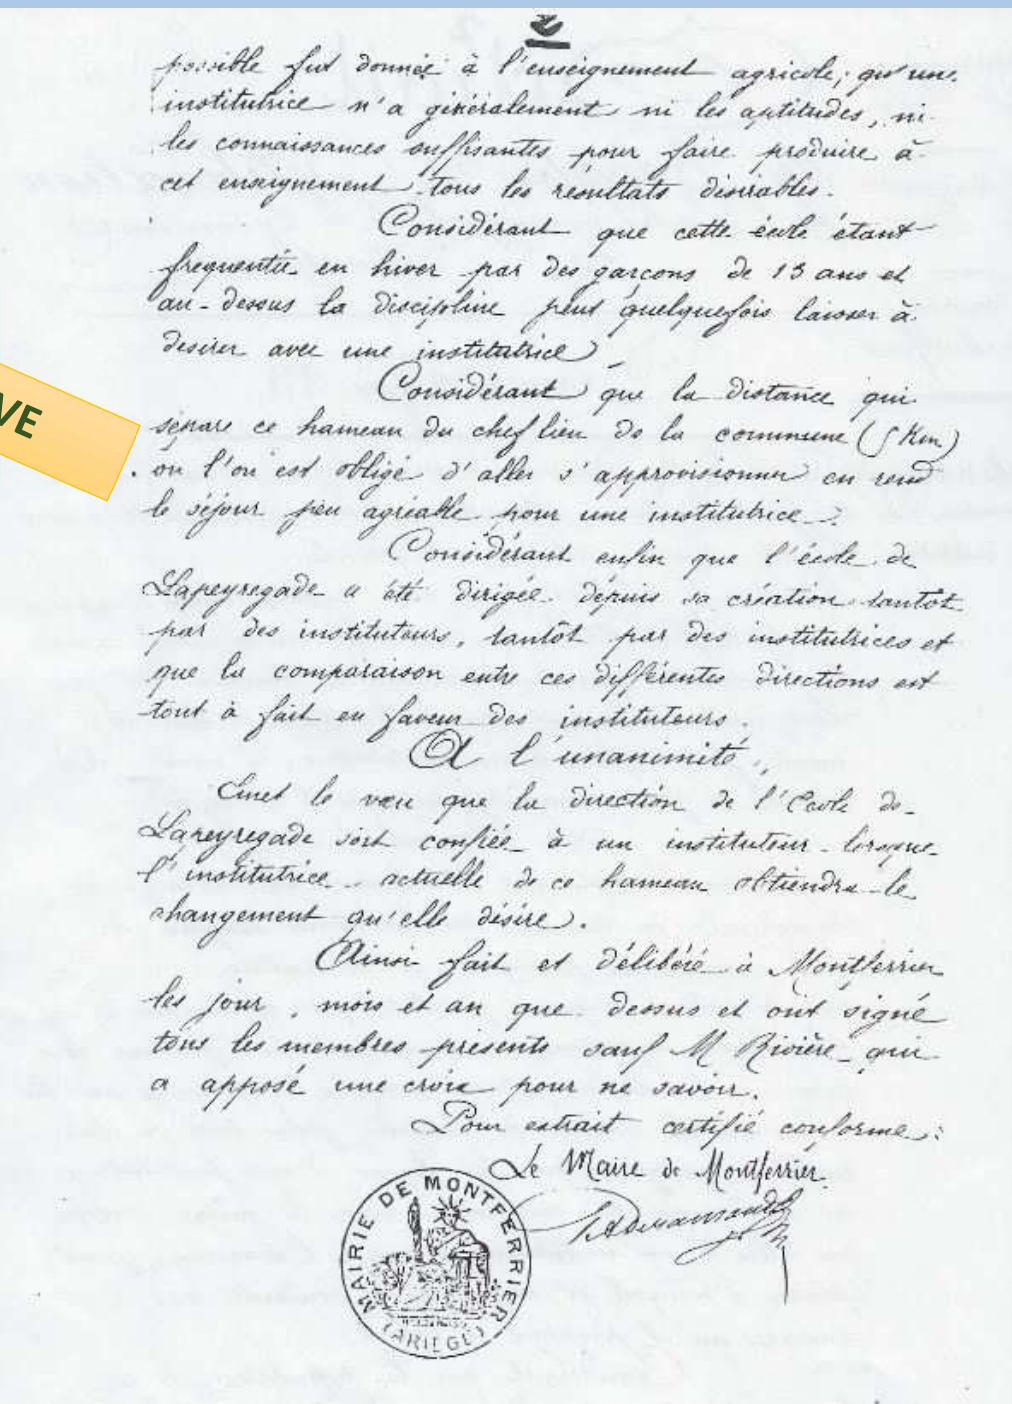 2
possible fut donnée à l'enseignement agricole; qu'une
institutrice n'a généralement ni les aptitudes, ni
les connaissances suffisantes pour faire produire à
cet enseignement tous les résultats désirables.
Considérant que cette école étant
frequentée en hiver par des garçons de 13 ans et
au-dessus la discipline peut quelquefois laisser à
desirer avec une institutrice
Considérant que la distance qui
sépare ce hameau du chef lieu de la commune (5 Km)
où l'on est obligé d'aller s'approvisionner en rend
le séjour peu agréable pour une institutrice.
Considérant enfin que l'école de
Lapeyregade a été dirigée depuis sa création tantôt
par des instituteurs, tantôt par des institutrices et
que la comparaison entre ces différentes directions est
tout à fait en faveur des instituteurs.
A l'unanimité,
Emet le vœu que la direction de l'Ecole de
Lapeyregade soit confiée à un instituteur lorsque
l'institutrice actuelle de ce hameau obtiendra le
changement qu'elle désire.
Ainsi fait et délibéré à Montferrier
les jour, mois et an que dessus et ont signé
tous les membres présents sauf M Rivière qui
a apposé une croix pour ne savoir.
Pour extrait certifié conforme:
Le Maire de Montferrier
MAIRIE DE MONTFERRIER
(ARIEGE)
VE